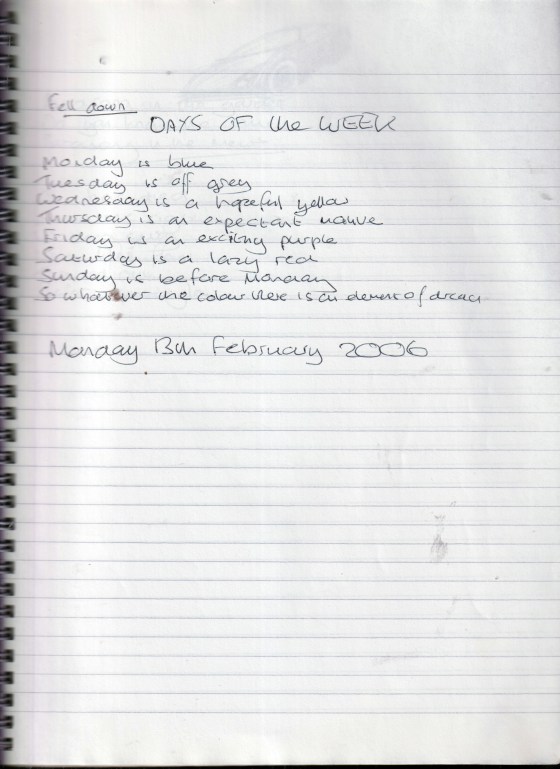 Fell down
DAYS OF the WEEK
Monday is blue
Tuesday is off grey
Wednesday is a hopeful yellow
Thursday is an expectant mauve
Friday is an exciting purple
Saturday is a lazy red
Sunday is before Monday
So whatever the colour there is an element of dread
Monday 13th February 2006